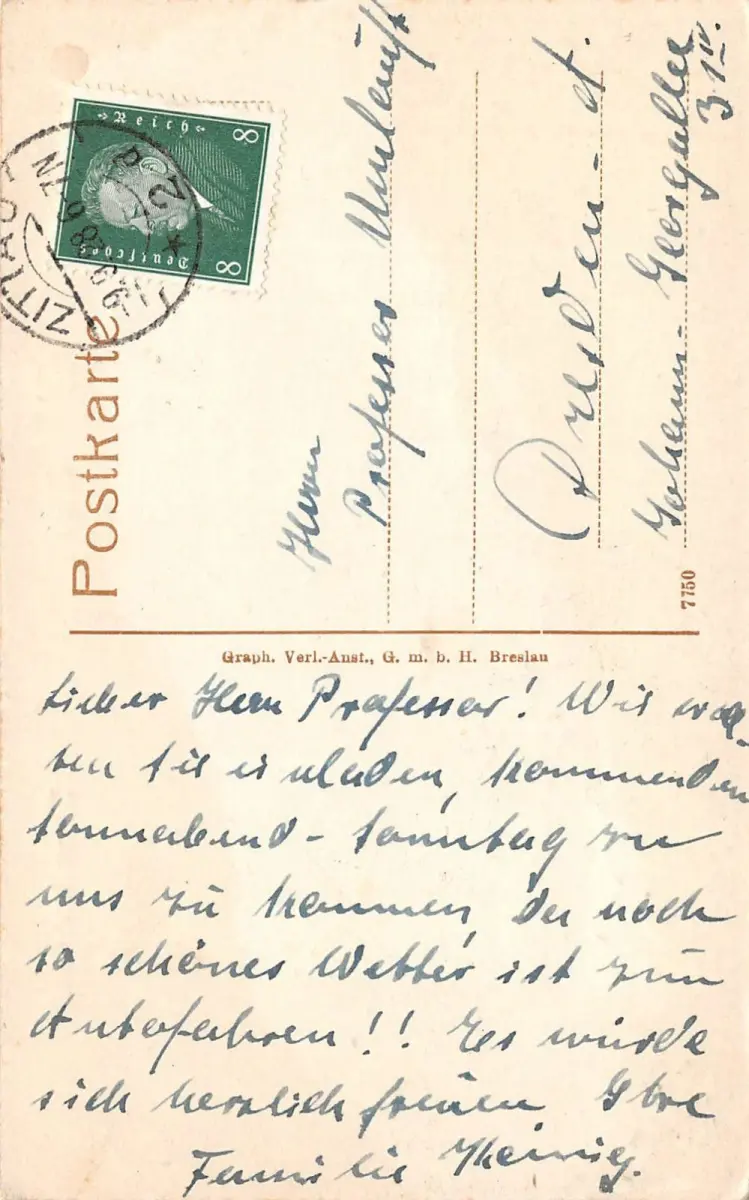 Postkarte
Deutsches Reich
8 8
ZITTAU
Herrn
Professor
Dresden - A.
Johann-Georgallee
31 IV.
7750
Graph. Verl.-Anst., G. m. b. H. Breslau
Lieber Herr Professor! Wir wol-
len Sie einladen, kommenden
Sonnabend - Sonntag zu
uns zu kommen, da noch
so schönes Wetter ist zum
Autofahren!! Es würde
sich herzlich freuen Ihre
Familie